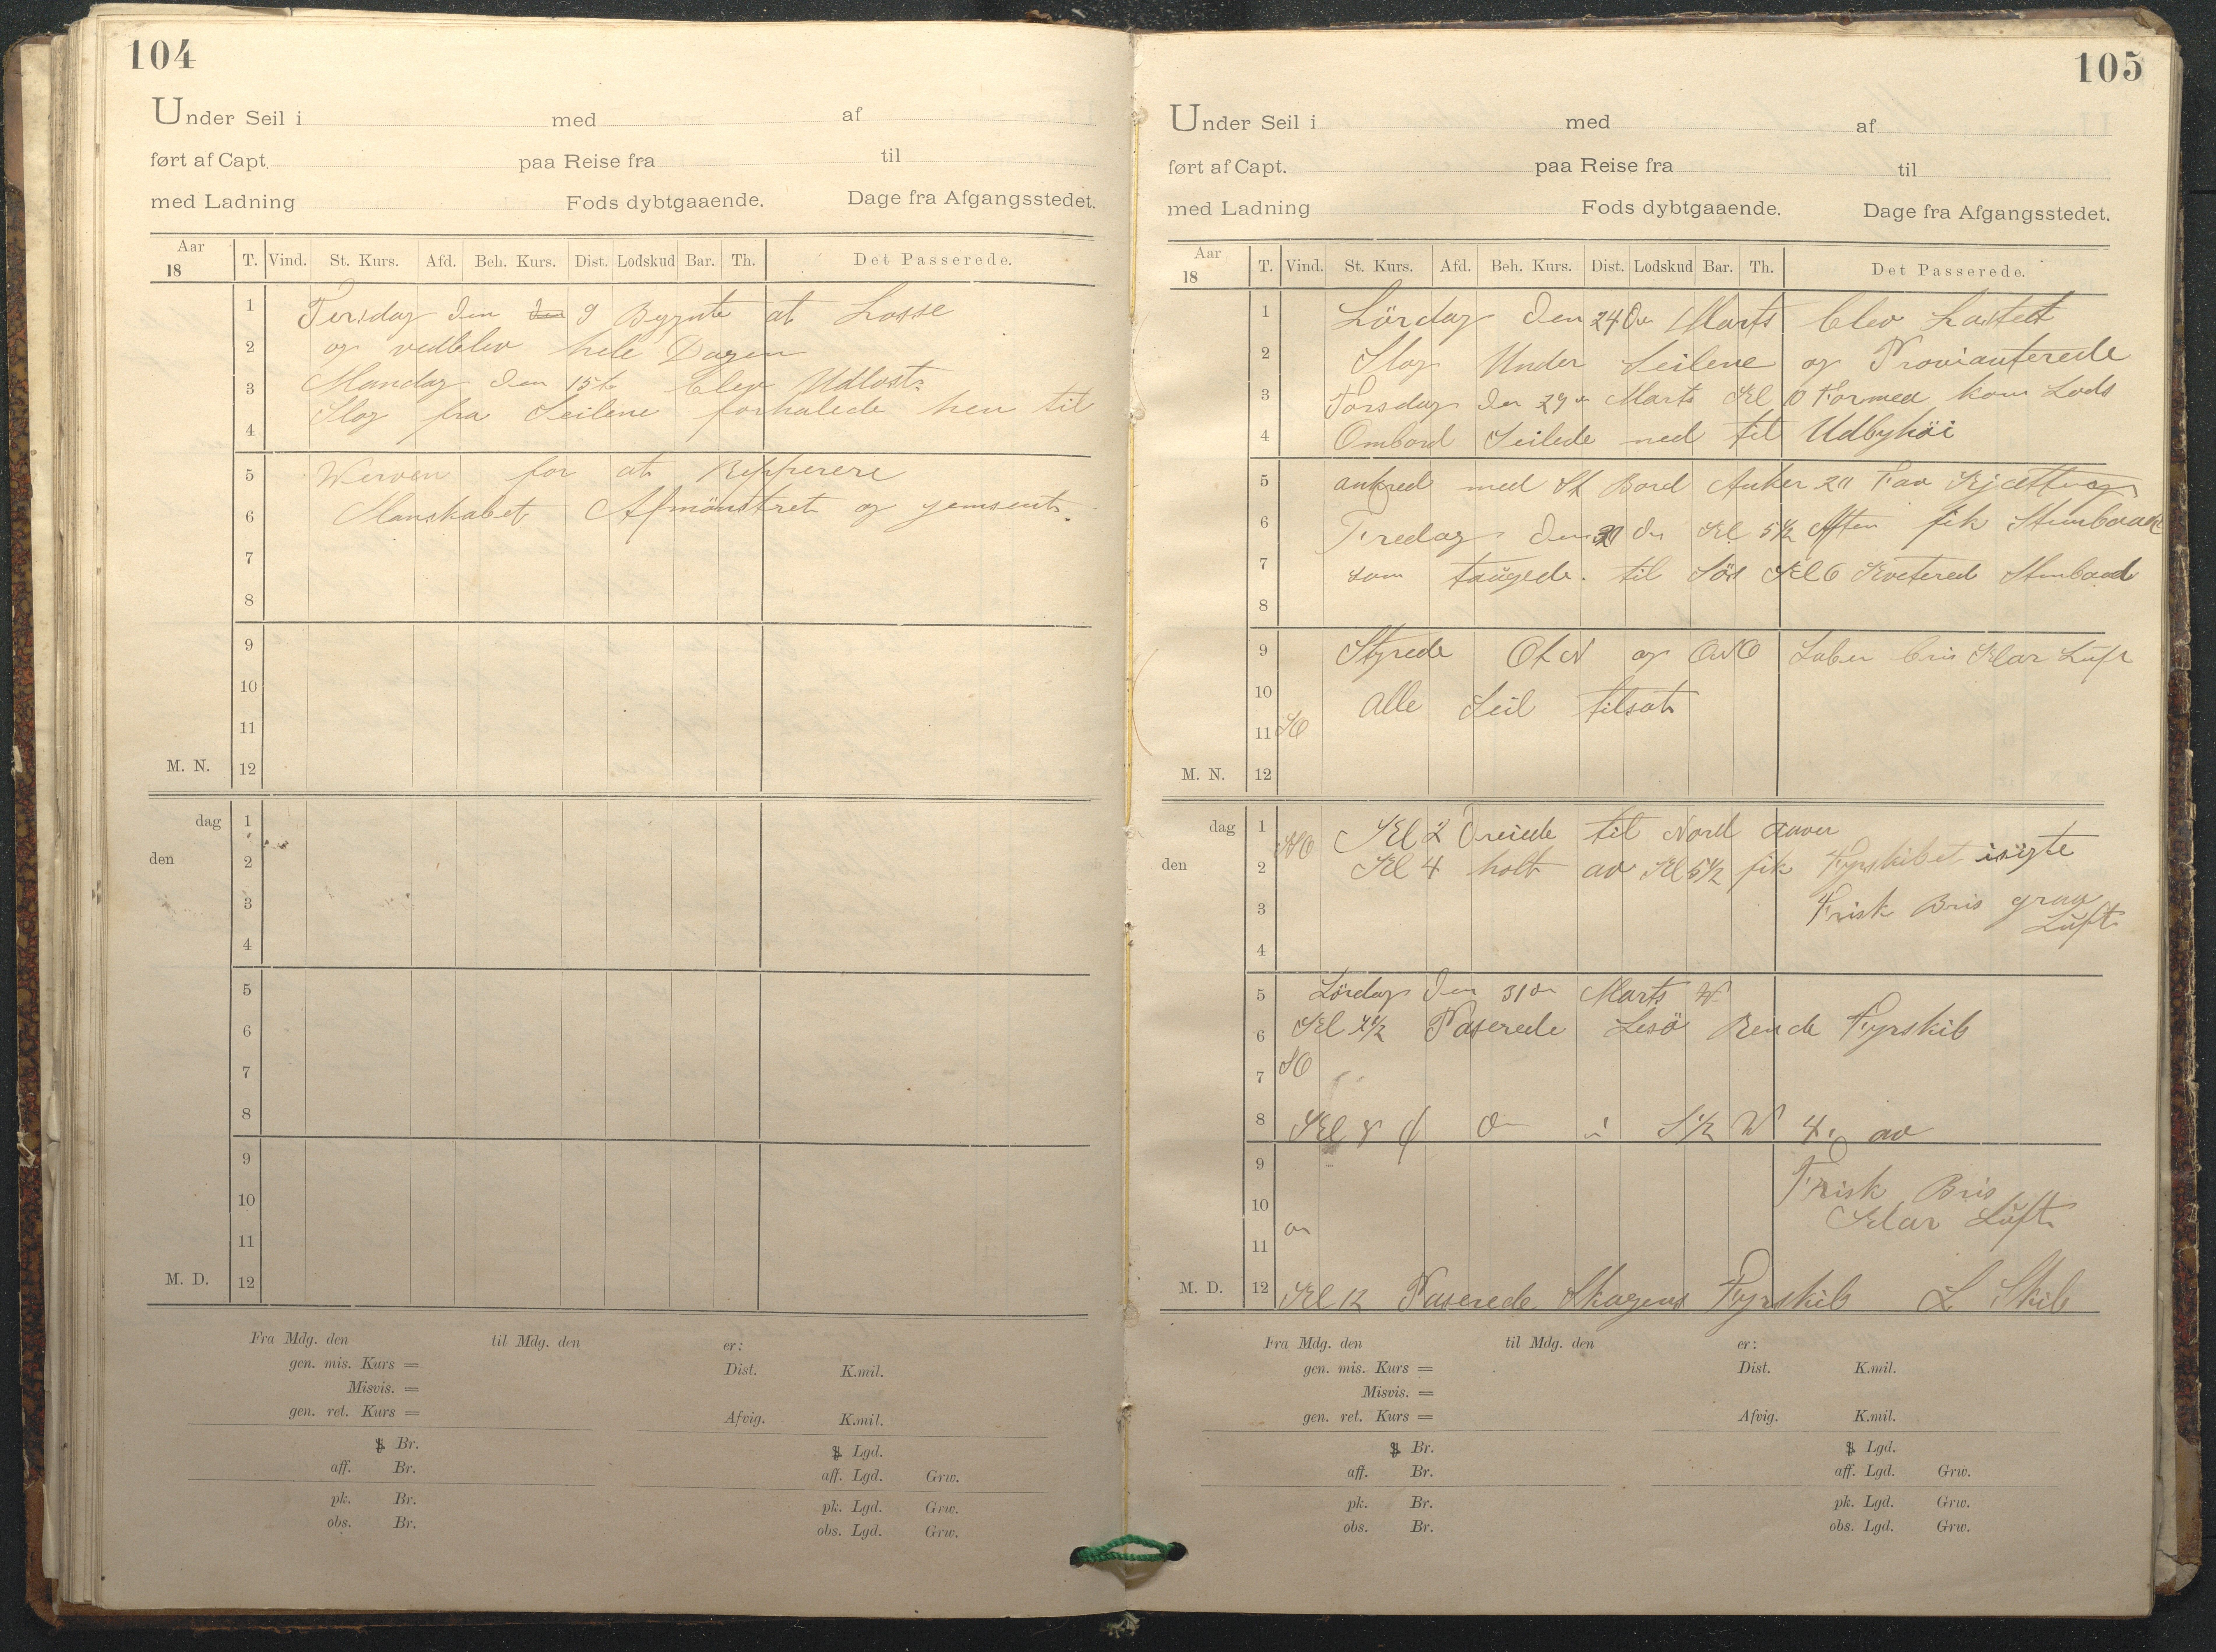 104
Under Seil i med af
ført af Capt. paa Reise fra til
med Ladning Fods dybtgaaende. Dage fra Afgangsstedet.
Aar 18 T. Vind. St. Kurs. Afd. Beh. Kurs. Dist. Lodskud Bar. Th. Det Passerede.
1 Tirsdag den 9 Bygynte at Losse
2 og vedblev hele Dagen
3 Mandag den 15te blev Udlost
4 Slog fra Seilene forhalede hen til
5 Werven for at Repperere
6 Manskabet Afmönstret og jemsent.
7
8
9
10
11
M. N. 12
dag 1
den 2
3
4
5
6
7
8
9
10
11
M. D. 12
Fra Mdg. den til Mdg. den er:
gen. mis. Kurs = Dist. K.mil.
Misvis. =
gen. ret. Kurs = Afvig. K.mil.
Br. Lgd.
aff. Br. aff. Lgd. Grw.
pk. Br. pk. Lgd. Grw.
obs. Br. obs. Lgd. Grw.
105
Under Seil i med af
ført af Capt. paa Reise fra til
med Ladning Fods dybtgaaende. Dage fra Afgangsstedet.
Aar 18 T. Vind. St. Kurs. Afd. Beh. Kurs. Dist. Lodskud Bar. Th. Det Passerede.
1 Lördag den 24de Marts blev Lastet
2 Slog Under Seilene og Provianterede
3 Torsdag den 29de Marts Kl 10 Formed kom Lods
4 Ombord Seilede ned til Udbyhöi
5 ankred med St Bord Anker 20 Fav Kjætting
6 Fredag den de Kl 5½ Aften fik Stimbaad
7 som taugede til Sös Kl 6 Kvetered Stimbaad
8
9 Styrede OtN og ONO Laber bris Klar Luft
10 alle Seil tilsat
11 SO
M. N. 12
dag 1 NO Kl 2 Dreiede til Nord over
den 2 Kl 4 holt av Kl 5½ fik Fyrskibet isigte
3 Frisk Bris graa
Luft
4
5 Lördag den 31de Marts
6 Kl 7½ Paserede Lesö Rende Fyrskib
7 SO
8 Kl 8 i S½W av
9 Frisk Bris
10 Klar Luft
11
M. D. 12 Kl 12 Paserede Skagens Fyrskib L Skib
Fra Mdg. den til Mdg. den er:
gen. mis. Kurs = Dist. K.mil.
Misvis. =
gen. ret. Kurs = Afvig. K.mil.
Br. Lgd.
aff. Br. aff. Lgd. Grw.
pk. Br. pk. Lgd. Grw.
obs. Br. obs. Lgd. Grw.